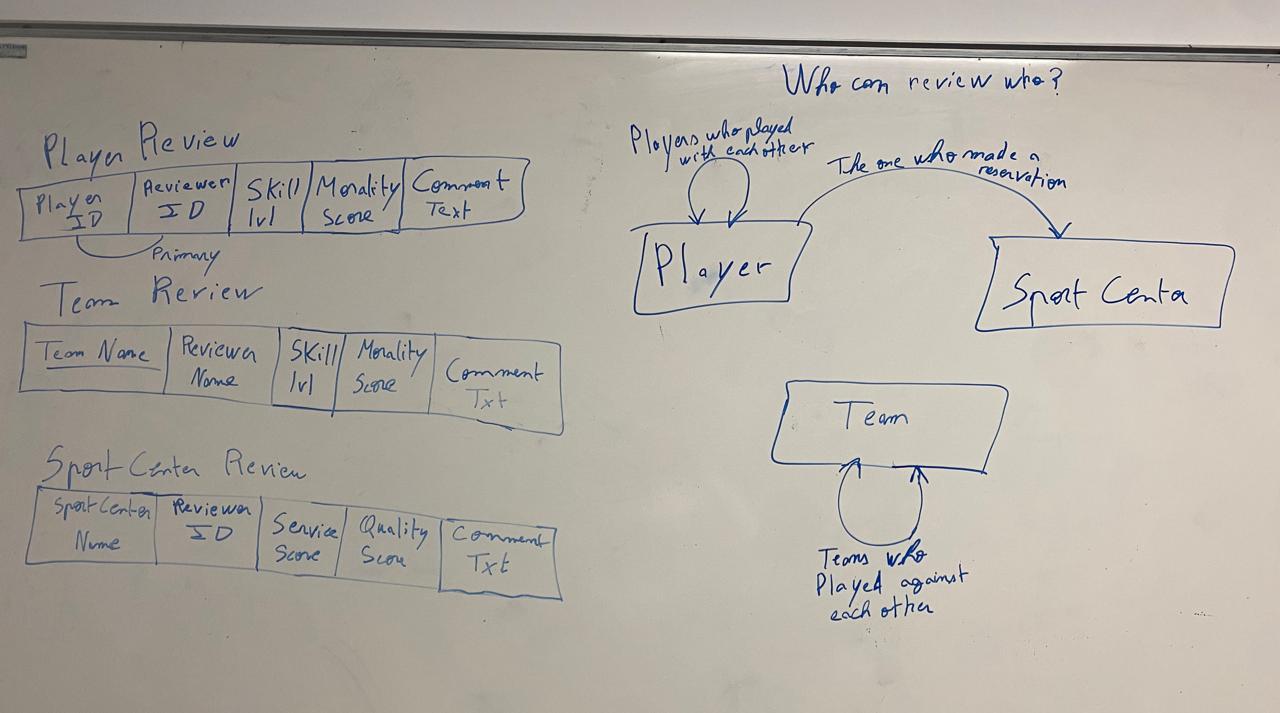 Who can review who?
Player Review
Player ID
Reviewer ID
Skill lvl
Morality Score
Comment Text
Primary
Team Review
Team Name
Reviewer Name
Skill lvl
Morality Score
Comment Txt
Sport Center Review
Sport Center Name
Reviewer ID
Service Score
Quality Score
Comment Txt
Players who played
with each other
The one who made a
reservation
Player
Sport Center
Team
Teams who
Played against
each other